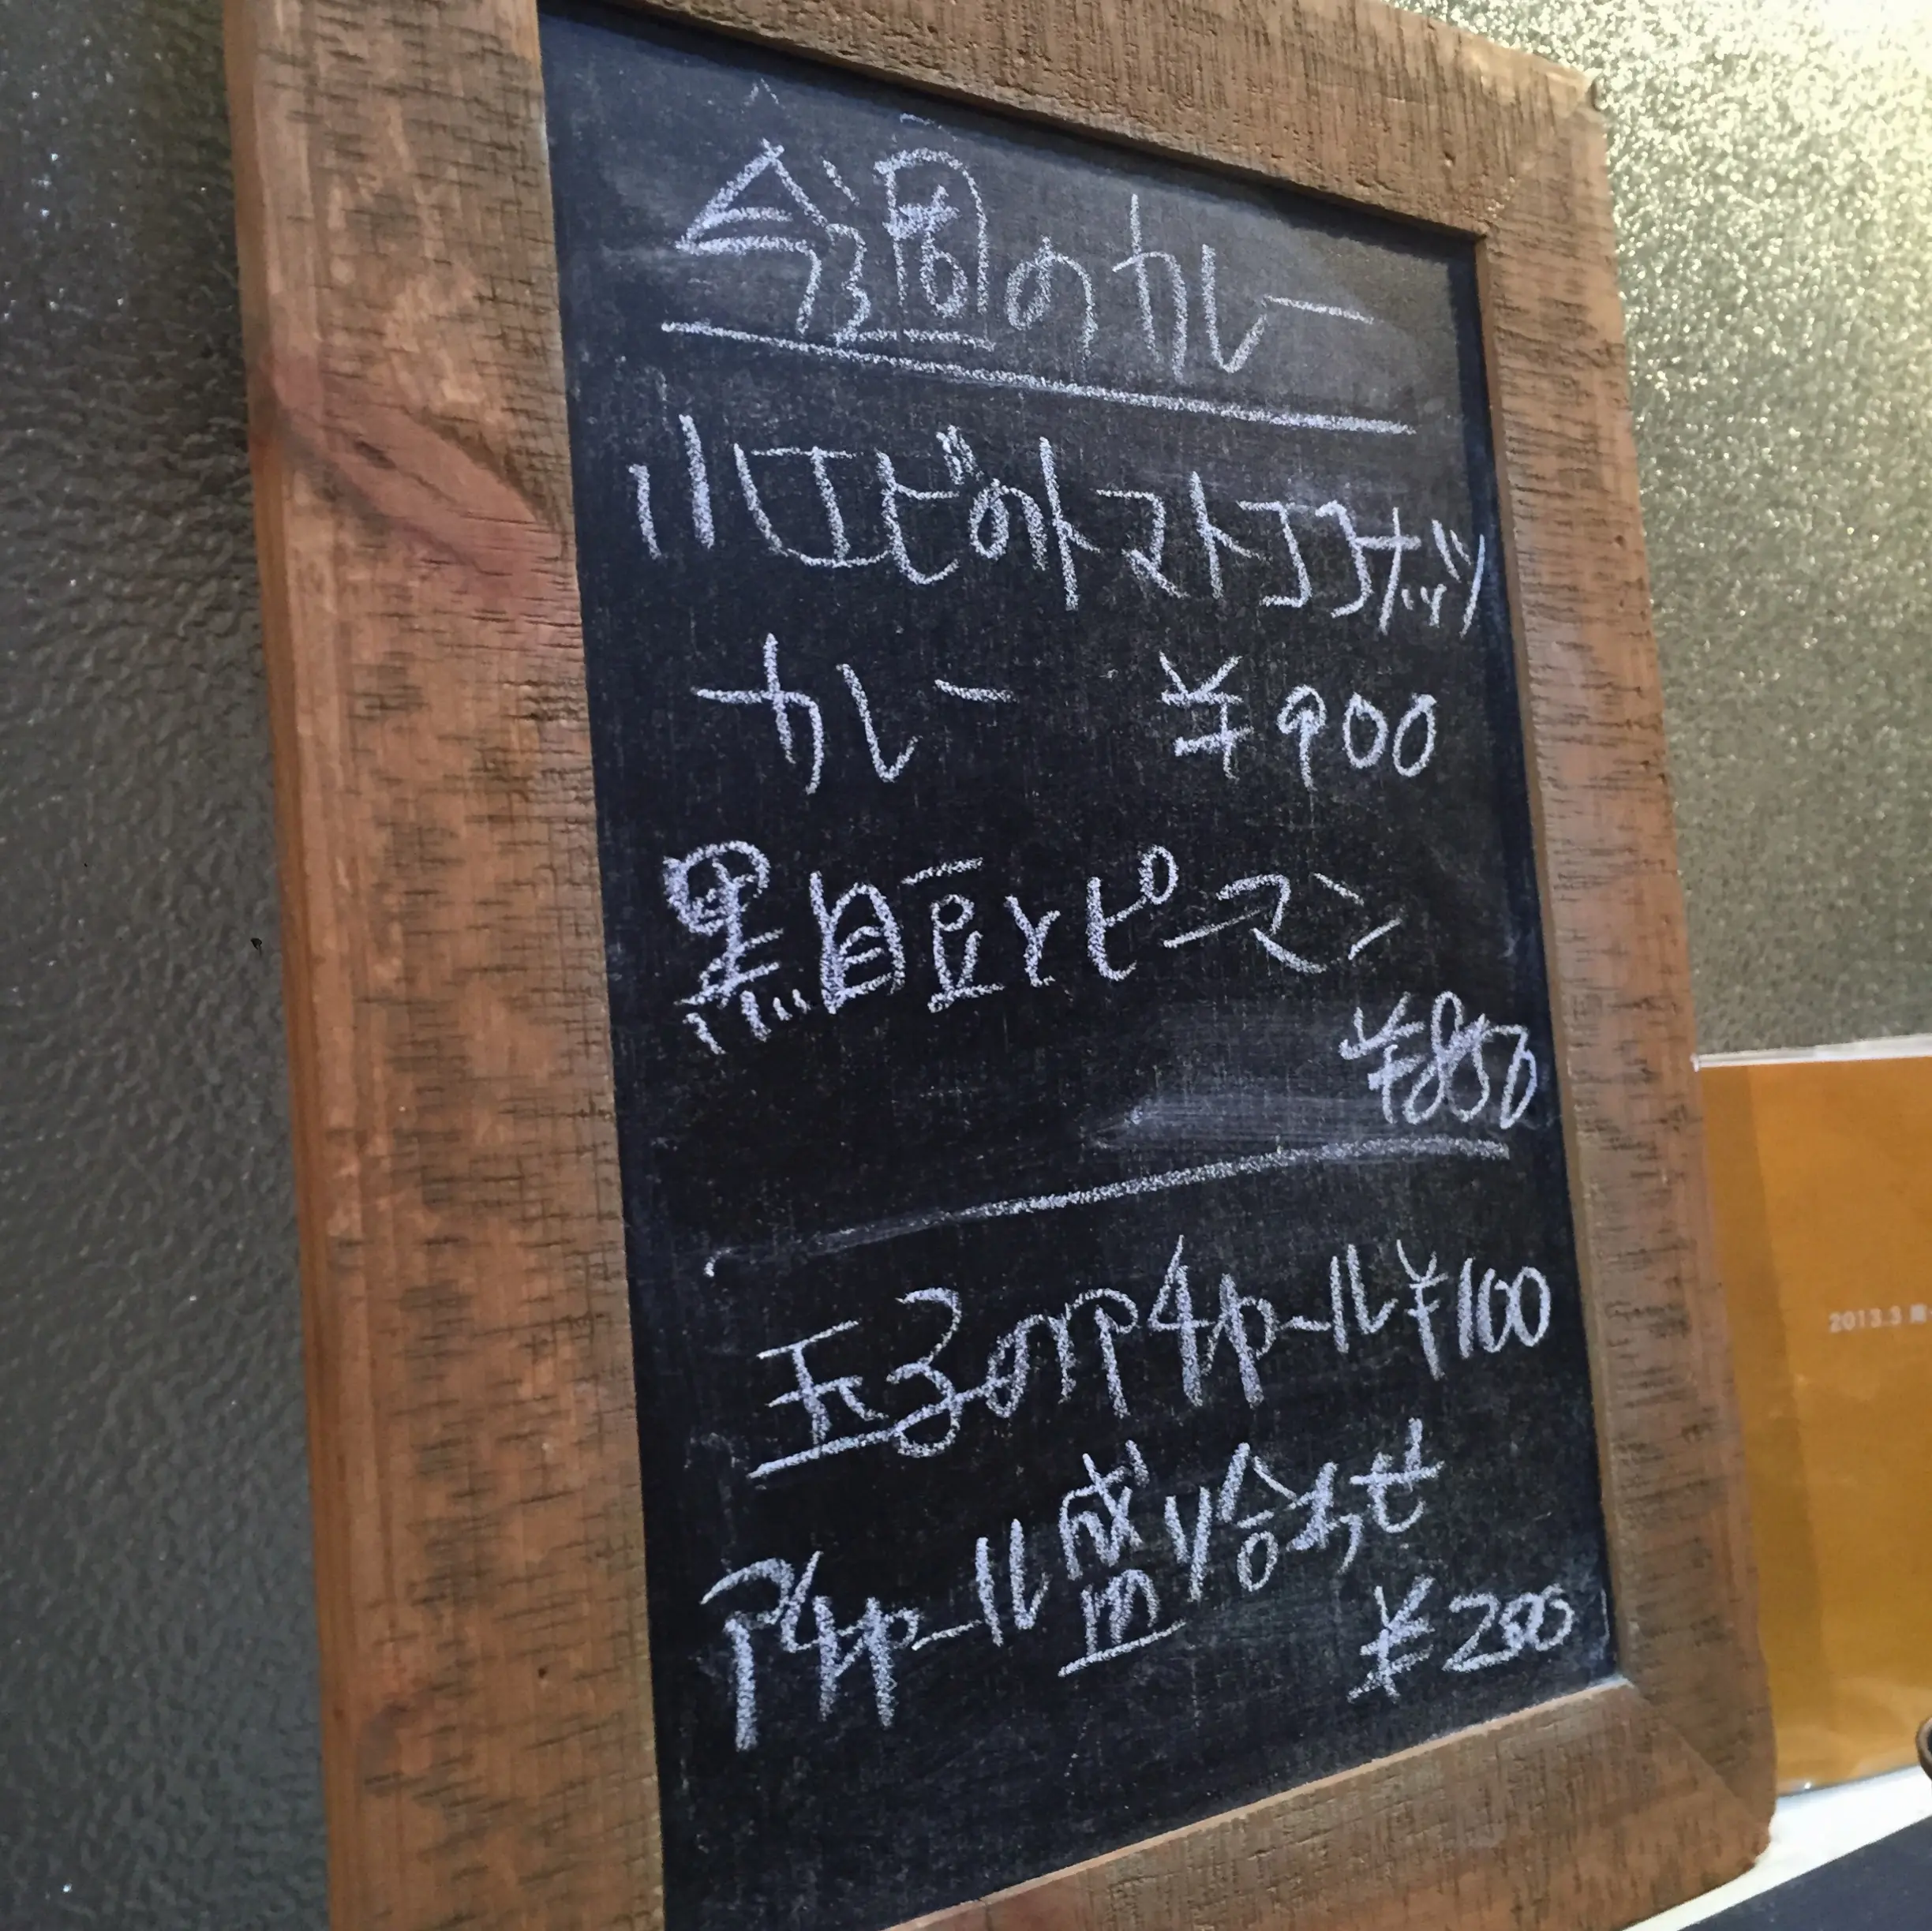 今週のカレー
小エビのトマトココナッツ
カレー ¥900
黒目豆とピーマン
¥850
玉子のアチャール ¥100
アチャール盛り合わせ
¥200
2013.3